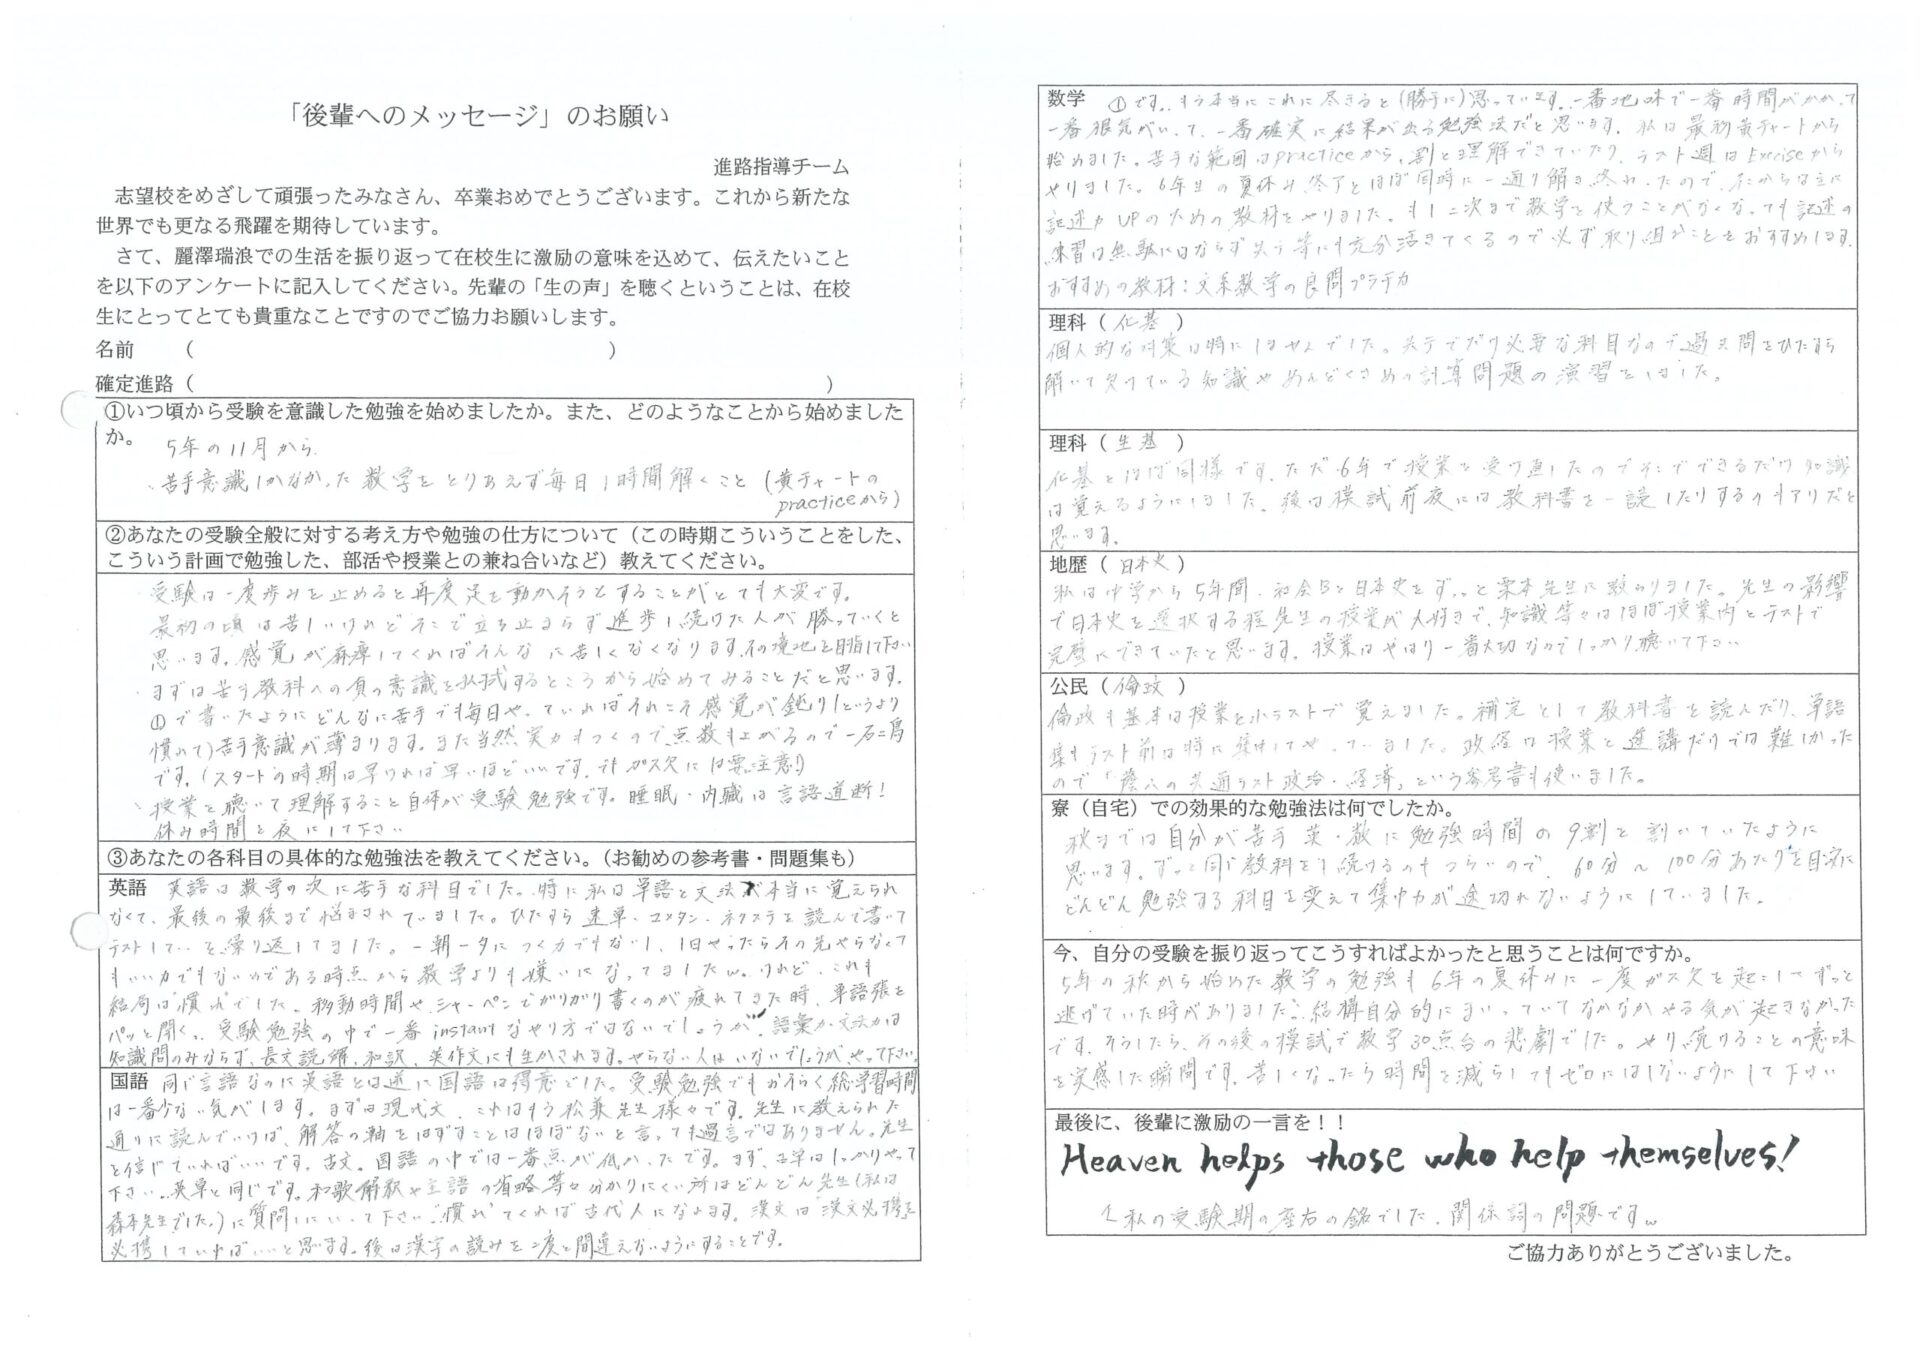 「後輩へのメッセージ」のお願い
進路指導チーム
志望校をめざして頑張ったみなさん、卒業おめでとうございます。これから新たな
世界でも更なる飛躍を期待しています。
さて、麗澤瑞浪での生活を振り返って在校生に激励の意味を込めて、伝えたいこと
を以下のアンケートに記入してください。先輩の「生の声」を聴くということは、在校
生にとってとても貴重なことですのでご協力お願いします。
名前 ( )
確定進路 ( )
①いつ頃から受験を意識した勉強を始めましたか。また、どのようなことから始めました
か。
5年の11月から
・苦手意識しかなかった数学をとりあえず毎日1時間解くこと (黄チャートの
practiceから)
②あなたの受験全般に対する考え方や勉強の仕方について（この時期こういうことをした、
こういう計画で勉強した、部活や授業との兼ね合いなど）教えてください。
・受験は一度歩みを止めると再度足を動かそうとすることがとても大変です。
最初の頃は苦しいけれどそこで立ち止まらず進歩し続けた人が勝っていくと
思います。感覚が麻痺してくればそんなに苦しくなくなります。その境地を目指して下さい
・まずは苦手教科への負の意識を払拭するところから始めてみることだと思います。
①で書いたようにどんなに苦手でも毎日やっていればそれこそ感覚が鈍り(というより
慣れて)苦手意識が薄まります。また当然実力もつくので点数も上がるので一石二鳥
です。(スタートの時期は早ければ早いほどいいです。ﾃﾞﾓガス欠には要注意!)
・授業を聴いて理解すること自体が受験勉強です。睡眠・内職は言語道断!
休み時間と夜にして下さい
③あなたの各科目の具体的な勉強法を教えてください。（お勧めの参考書・問題集も）
英語 英語は数学の次に苦手な科目でした。特に私は単語と文法が本当に覚えられ
なくて、最後の最後まで悩まされていました。ひたすら速単・ユメタン・ネクステを読んで書いて
テストしてい を繰り返してました。一朝一夕につく力でもないし、1日やったらその先やらなくて
もいい力でもないのである時点から数学よりも嫌いになってましたw。けれど、これも
結局は"慣れ"でした。移動時間や、シャーペンでガリガリ書くのが疲れてきた時、単語張を
パッと開く。受験勉強の中で一番instantなやり方ではないでしょうか。語彙力・文法力は
知識問のみならず、長文読解、和訳、英作文にも生かされます。やらない人はいないでしょうが、やって下さい。
国語 同じ言語なのに英語とは逆に国語は得意でした。受験勉強でもおそらく総学習時間
は一番少ない気がします。まずは現代文、これはもう松兼先生様々です。先生に教えられた
通りに読んでいけば、解答の軸をはずすことはほぼないと言っても過言ではありません。先生
を信じていればいいです。古文。国語の中では一番点が低かったです。まず、古単はしっかりやって
下さい。英単と同じです。和歌解釈や主語の省略等々分かりにくい所はどんどん先生(私は
森本先生でした。)に質問しにいって下さい。"慣れ"てくれば古代人になれます。漢文は「漢文必携」を
必携していればいいと思います。後は漢字の読みを二度と間違えないようにすることです。
数学 ①です。もう本当にこれに尽きると(勝手に)思っています。一番地味で一番時間がかかって
一番根気がいって、一番確実に結果が出る勉強法だと思います。私は最初黄チャートから
始めました。苦手な範囲はpracticeから、割と理解できていたり、テスト週はExerciseから
やりました。6年生の夏休み終了とほぼ同時に一通り解き終わったので、そこからは主に
記述力UPのための教材をやりました。もし二次まで数学を使うことがなくなっても記述の
練習は無駄にはならず共テ等にも充分活きてくるので必ず取り組むことをおすすめします。
おすすめの教材：文系数学の良問プラチカ
理科（ 化基 ）
個人的な対策は特にしませんでした。共テでだけ必要な科目なので過去問をひたすら
解いて欠けている知識やめんどくさめの計算問題の演習をしました。
理科（ 生基 ）
化基とほぼ同様です。ただ6年で授業を受け直したのでそこでできるだけ知識
は覚えるようにしました。後は模試前夜には教科書を一読したりするのもアリだと
思います。
地歴（ 日本史 ）
私は中学から5年間、社会Bと日本史をずっと栗本先生に教わりました。先生の影響
で日本史を選択する程先生の授業が大好きで、知識等々はほぼ授業内とテストで
完璧にできていたと思います。授業はやはり一番大切なのでしっかり聴いて下さい
公民（ 倫政 ）
倫政も基本は授業と小テストで覚えました。補完として教科書を読んだり、単語
集もテスト前は特に集中してやっていました。政経は授業と進講だけでは難しかった
ので「蔭山の共通テスト政治・経済」という参考書も使いました。
寮（自宅）での効果的な勉強法は何でしたか。
秋までは自分が苦手英・数に勉強時間の9割を割いていたように
思います。ずっと同じ教科をし続けるのもつらいので、60分～100分あたりを目安に
どんどん勉強する科目を変えて集中力が途切れないようにしていました。
今、自分の受験を振り返ってこうすればよかったと思うことは何ですか。
5年の秋から始めた数学の勉強も6年の夏休みに一度ガス欠を起こしてずっと
逃げていた時がありました。結構自分的にまいっていてなかなかやる気が起きなかった
です。そうしたら、その後の模試で数学30点台の悲劇でした。やり続けることの意味
を実感した瞬間です。苦しくなったら時間を減らしてもゼロにはしないようにして下さい
最後に、後輩に激励の一言を！！
Heaven helps those who help themselves!
↑私の受験期の座右の銘でした。関係詞の問題ですw
ご協力ありがとうございました。